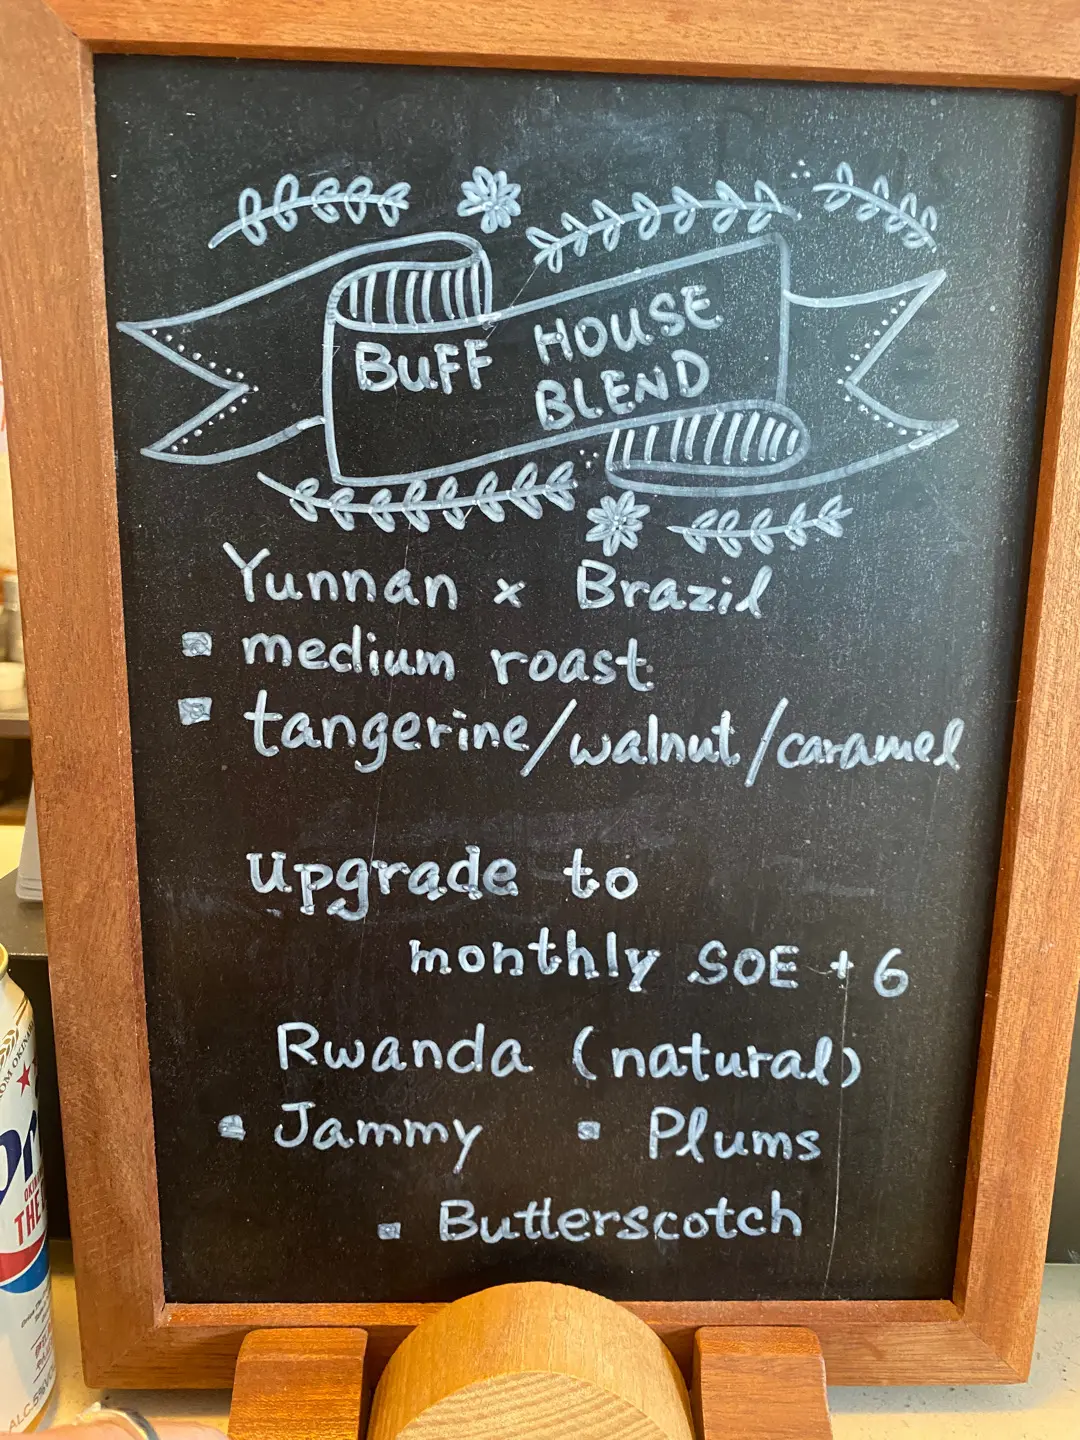 BUFF HOUSE
BLEND
Yunnan x Brazil
medium roast
tangerine/walnut/caramel
upgrade to
monthly SOE + 6
Rwanda (natural)
Jammy Plums
Butterscotch
THE
ALC.5%